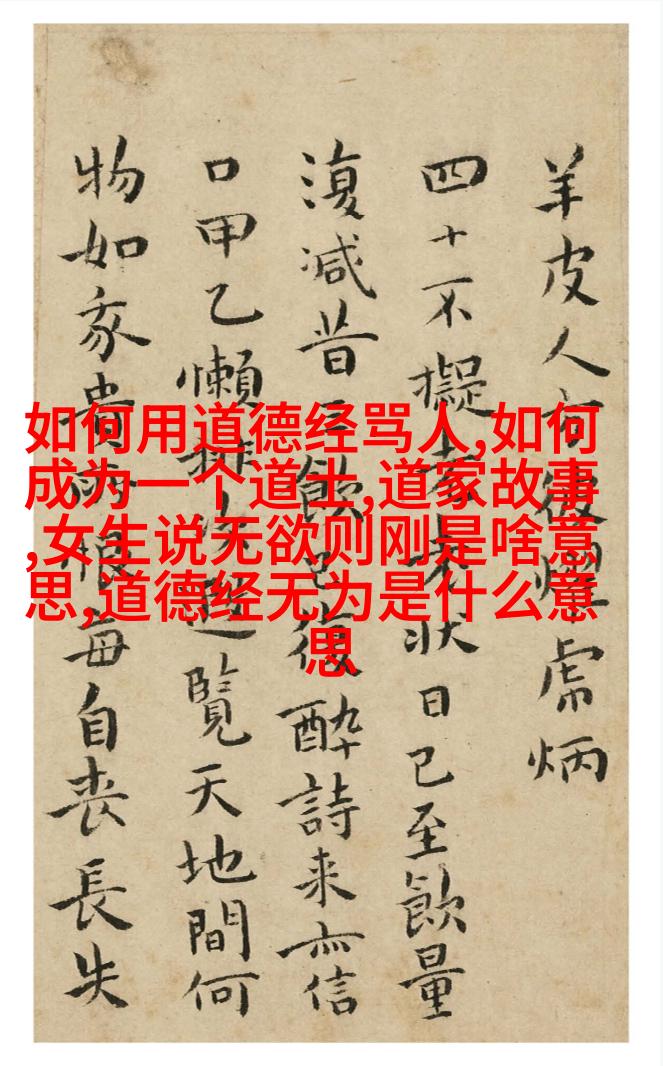 如何用道德经骂人,如何
成为一个道士,道家故事
,女生说无欲则刚是啥意
思,道德经无为是什么意
思
羊皮人炳
四十不擬狀日已至飲量
復減昔飲復醉詩来亦信
口甲乙懶覽天地間何
物如每自喪長失